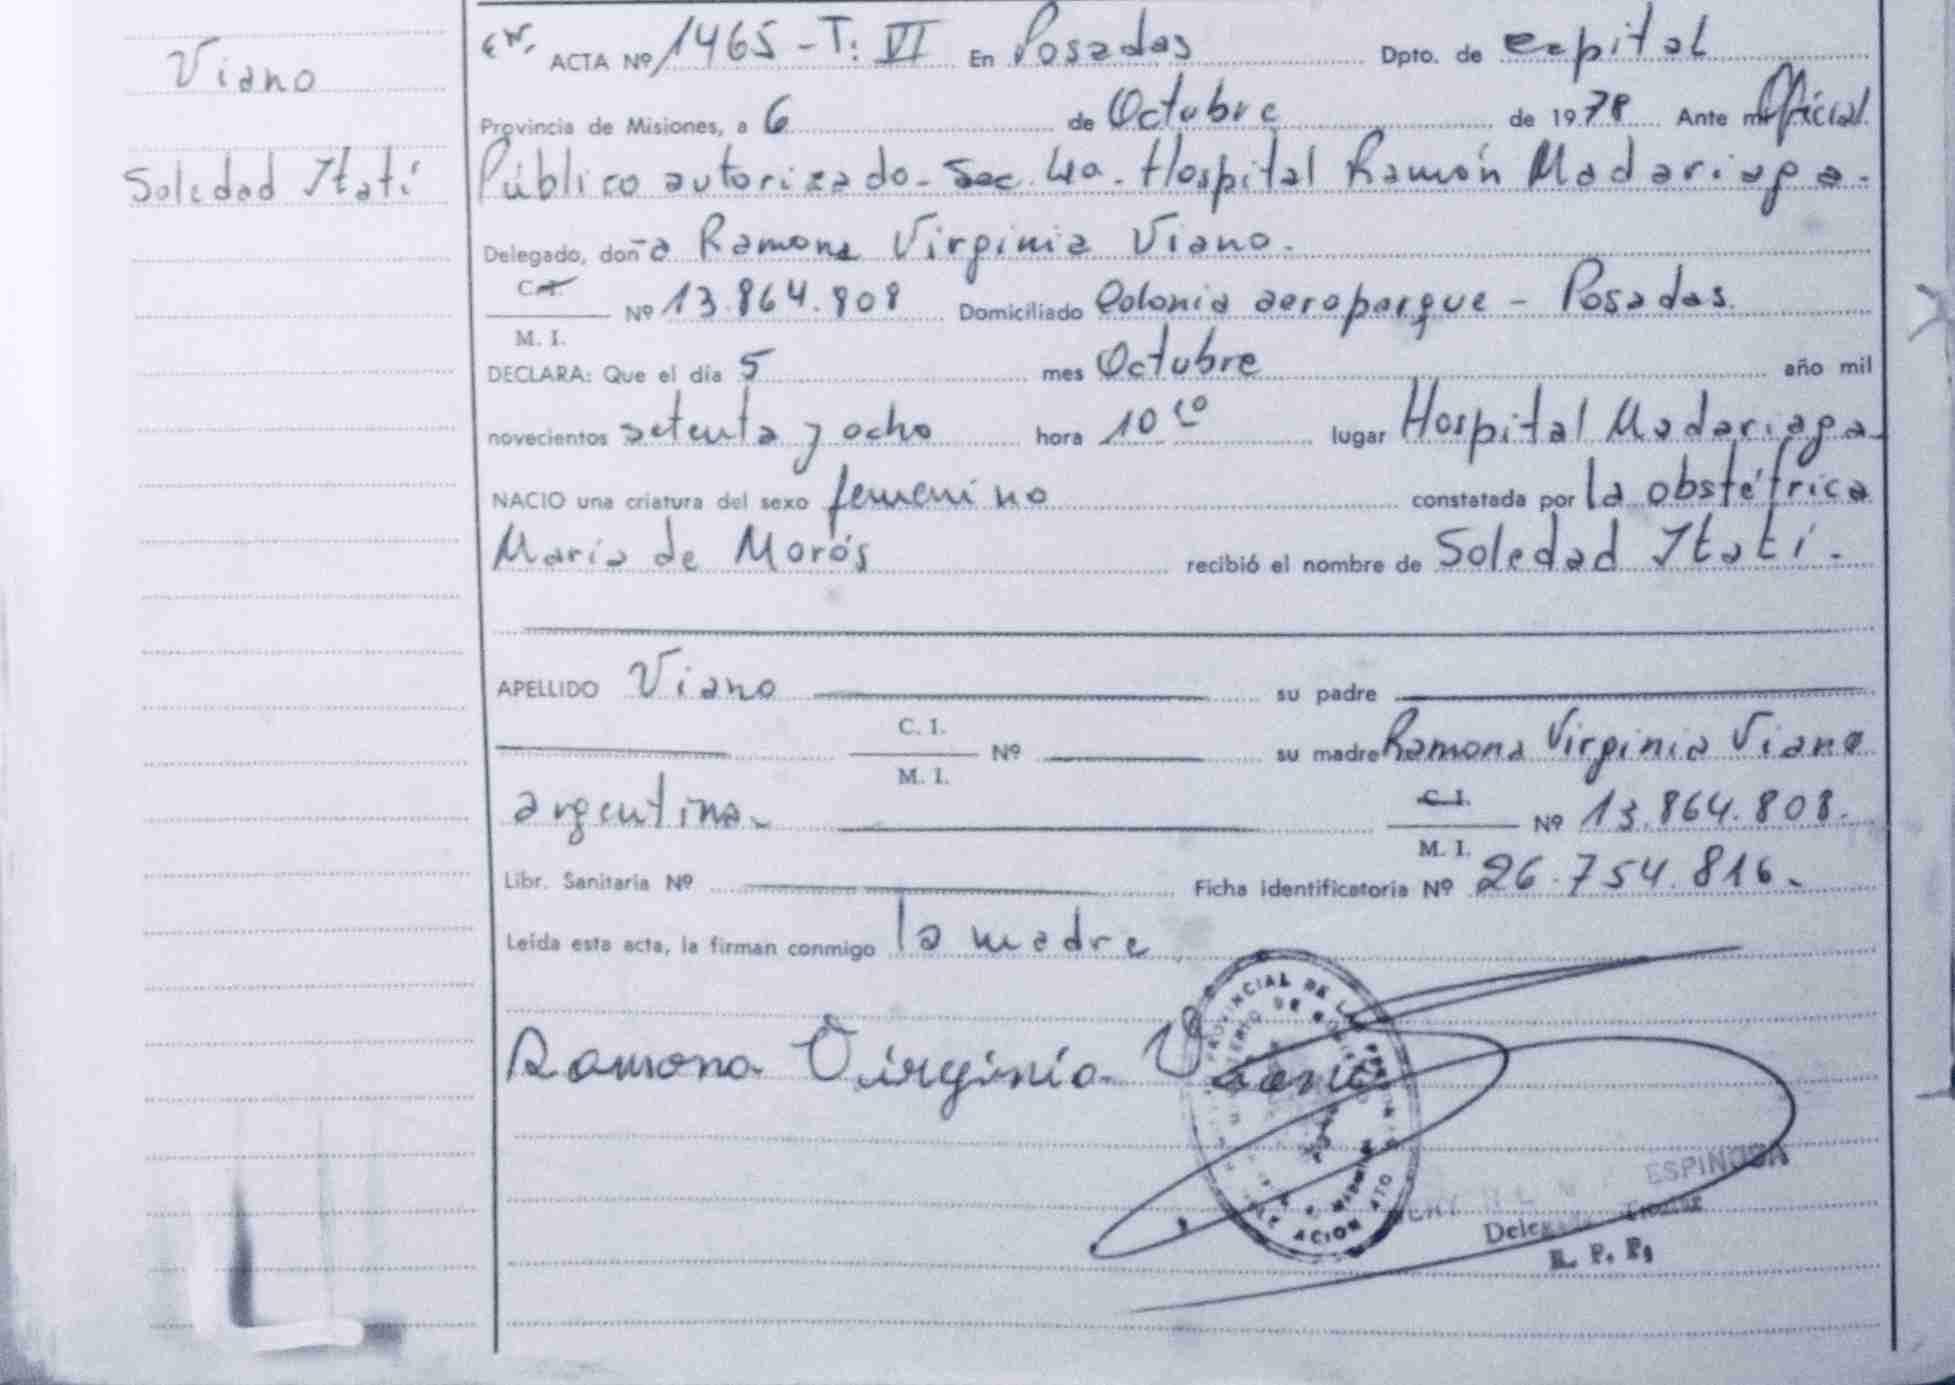 Viano
Soledad Itatí
ACTA Nº 1465 - T: VI En Posadas Dpto. de capital
Provincia de Misiones, a 6 de Octubre de 1978 Ante mí Oficial
Público autorizado - Sec. 4a. Hospital Ramón Madariaga.
Delegado, doña Ramona Virginia Viano.
C. I.
Nº 13.864.808 Domiciliado Colonia aeroparque - Posadas.
M. I.
DECLARA: Que el día 5 mes Octubre año mil
novecientos setenta y ocho hora 10 lugar Hospital Madariaga
NACIO una criatura del sexo femenino constatada por la obstétrica
María de Morós recibió el nombre de Soledad Itatí.
APELLIDO Viano su padre
C. I.
Nº su madre Ramona Virginia Viano
M. I.
argentina. C. I. Nº 13.864.808.
M. I.
Libr. Sanitaria Nº Ficha identificatoria Nº 26.754.816.
Leída esta acta, la firman conmigo la madre
Ramona Virginia Viano
PROVINCIAL DE LAS
ESPINOSA
R. P. P.